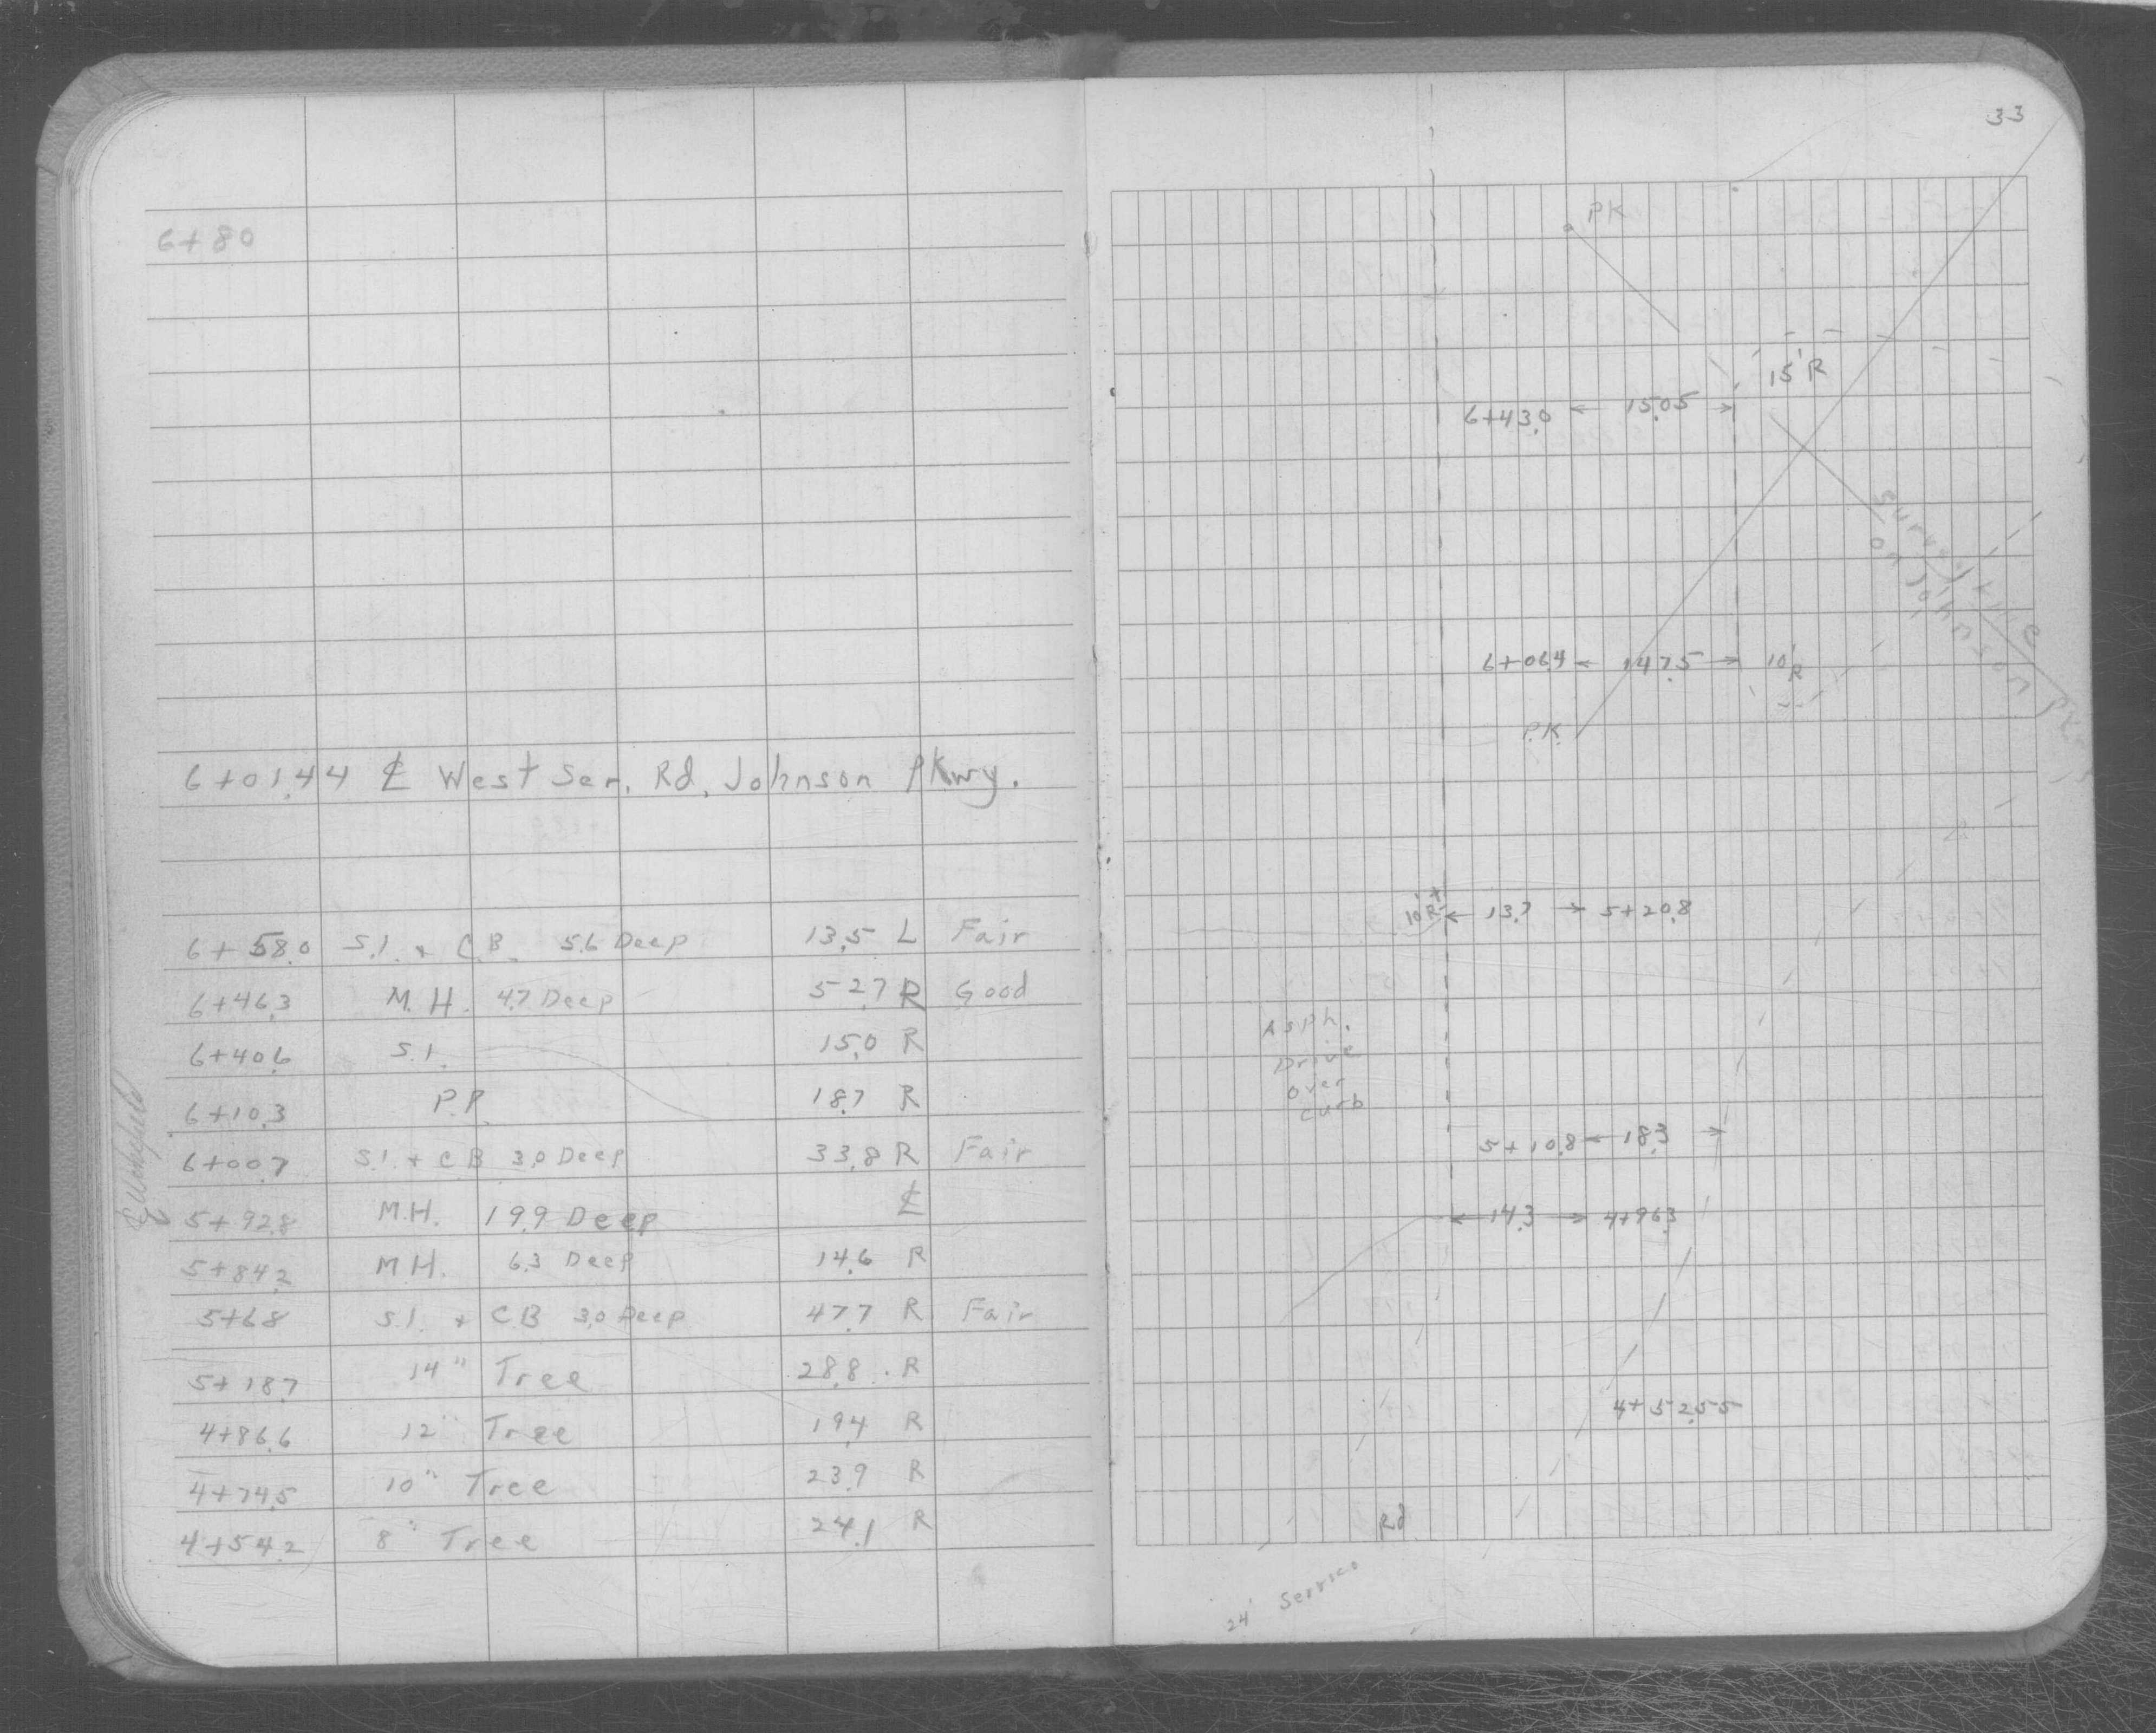 33
6+80
6+01.44 ℄ West Ser. Rd. Johnson Pkwy.
6+58.0 S.I. + C.B. 5.6 Deep 13.5 L Fair
6+46.3 M.H. 4.7 Deep 52.7 R Good
6+40.6 S.I. 15.0 R
6+10.3 P.P. 18.7 R
6+00.7 S.I. + CB 3.0 Deep 33.8 R Fair
5+92.8 M.H. 19.9 Deep ℄
5+84.2 M.H. 6.3 Deep 14.6 R
5+68 S.I. + C.B 3.0 Deep 47.7 R Fair
5+18.7 14" Tree 28.8 R
4+86.6 12" Tree 19.4 R
4+74.5 10" Tree 23.9 R
4+54.2 8" Tree 24.1 R
PK
15' R
6+43.0 ← 15.05 →
Survey Line
on Johnson Pk
6+06.4 ← 14.75 → 10' R
P.K.
10' R ← 13.7 → 5+20.8
Asph.
Drive
over
curb
5+10.8 ← 18.3 →
← 14.3 → 4+96.3
4+52.55
24' Service Rd